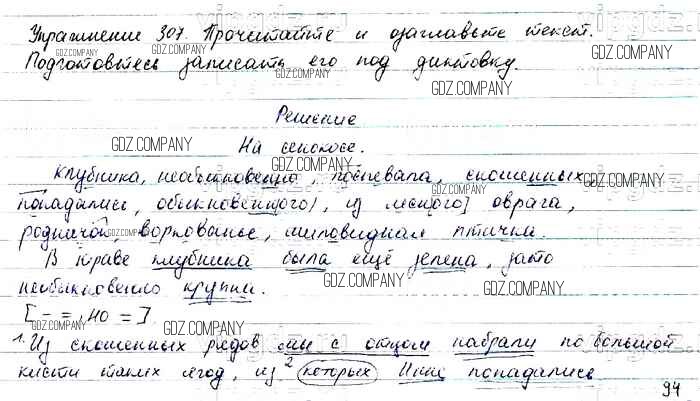 Упражнение 307. Прочитайте и озаглавьте текст.
Подготовьтесь записать его под диктовку.
Решение
На сенокосе.
Клубника, необыкновенно, поспевала, скошенных
попадались, обыкновен(ного), из лесн[ого] оврага,
родничок, воркованье, миловидная птичка.
В траве клубника была ещё зелена, зато
необыкновенно крупна.
[— =, но =]
1. Из скошенных рядов мы с отцом набрали по большой
кисти таких ягод, из 2 которых иные попадались
94
GDZ.COMPANY
vipgdz.ru